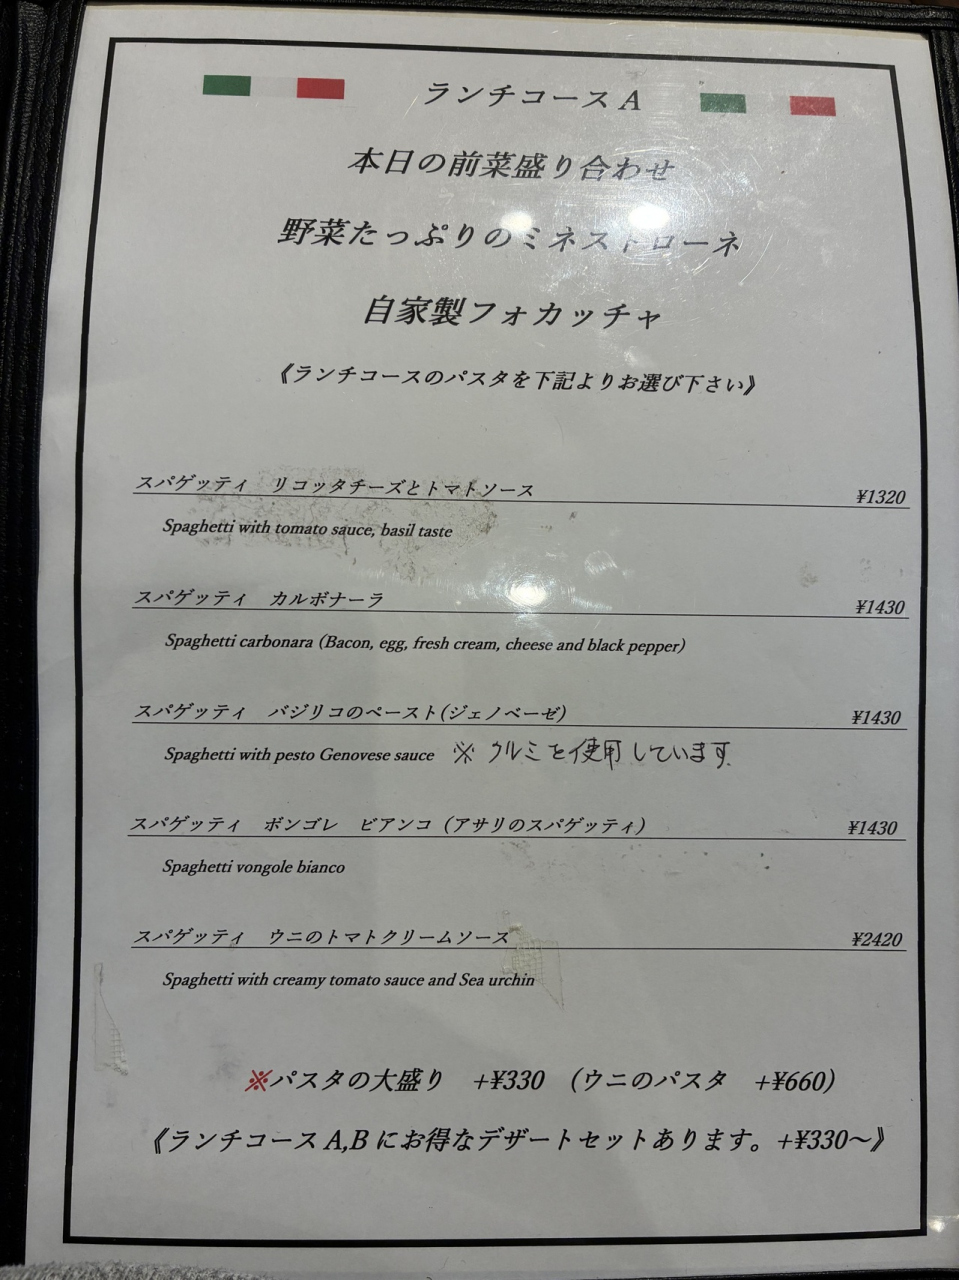 ランチコース A
本日の前菜盛り合わせ
野菜たっぷりのミネストローネ
自家製フォカッチャ
《ランチコースのパスタを下記よりお選び下さい》
スパゲッティ　リコッタチーズとトマトソース　¥1320
Spaghetti with tomato sauce, basil taste
スパゲッティ　カルボナーラ　¥1430
Spaghetti carbonara (Bacon, egg, fresh cream, cheese and black pepper)
スパゲッティ　バジリコのペースト(ジェノベーゼ)　¥1430
Spaghetti with pesto Genovese sauce　※ クルミを使用しています
スパゲッティ　ボンゴレ　ビアンコ（アサリのスパゲッティ）　¥1430
Spaghetti vongole bianco
スパゲッティ　ウニのトマトクリームソース　¥2420
Spaghetti with creamy tomato sauce and Sea urchin
※パスタの大盛り　+¥330　（ウニのパスタ　+¥660）
《ランチコース A,B にお得なデザートセットあります。+¥330～》